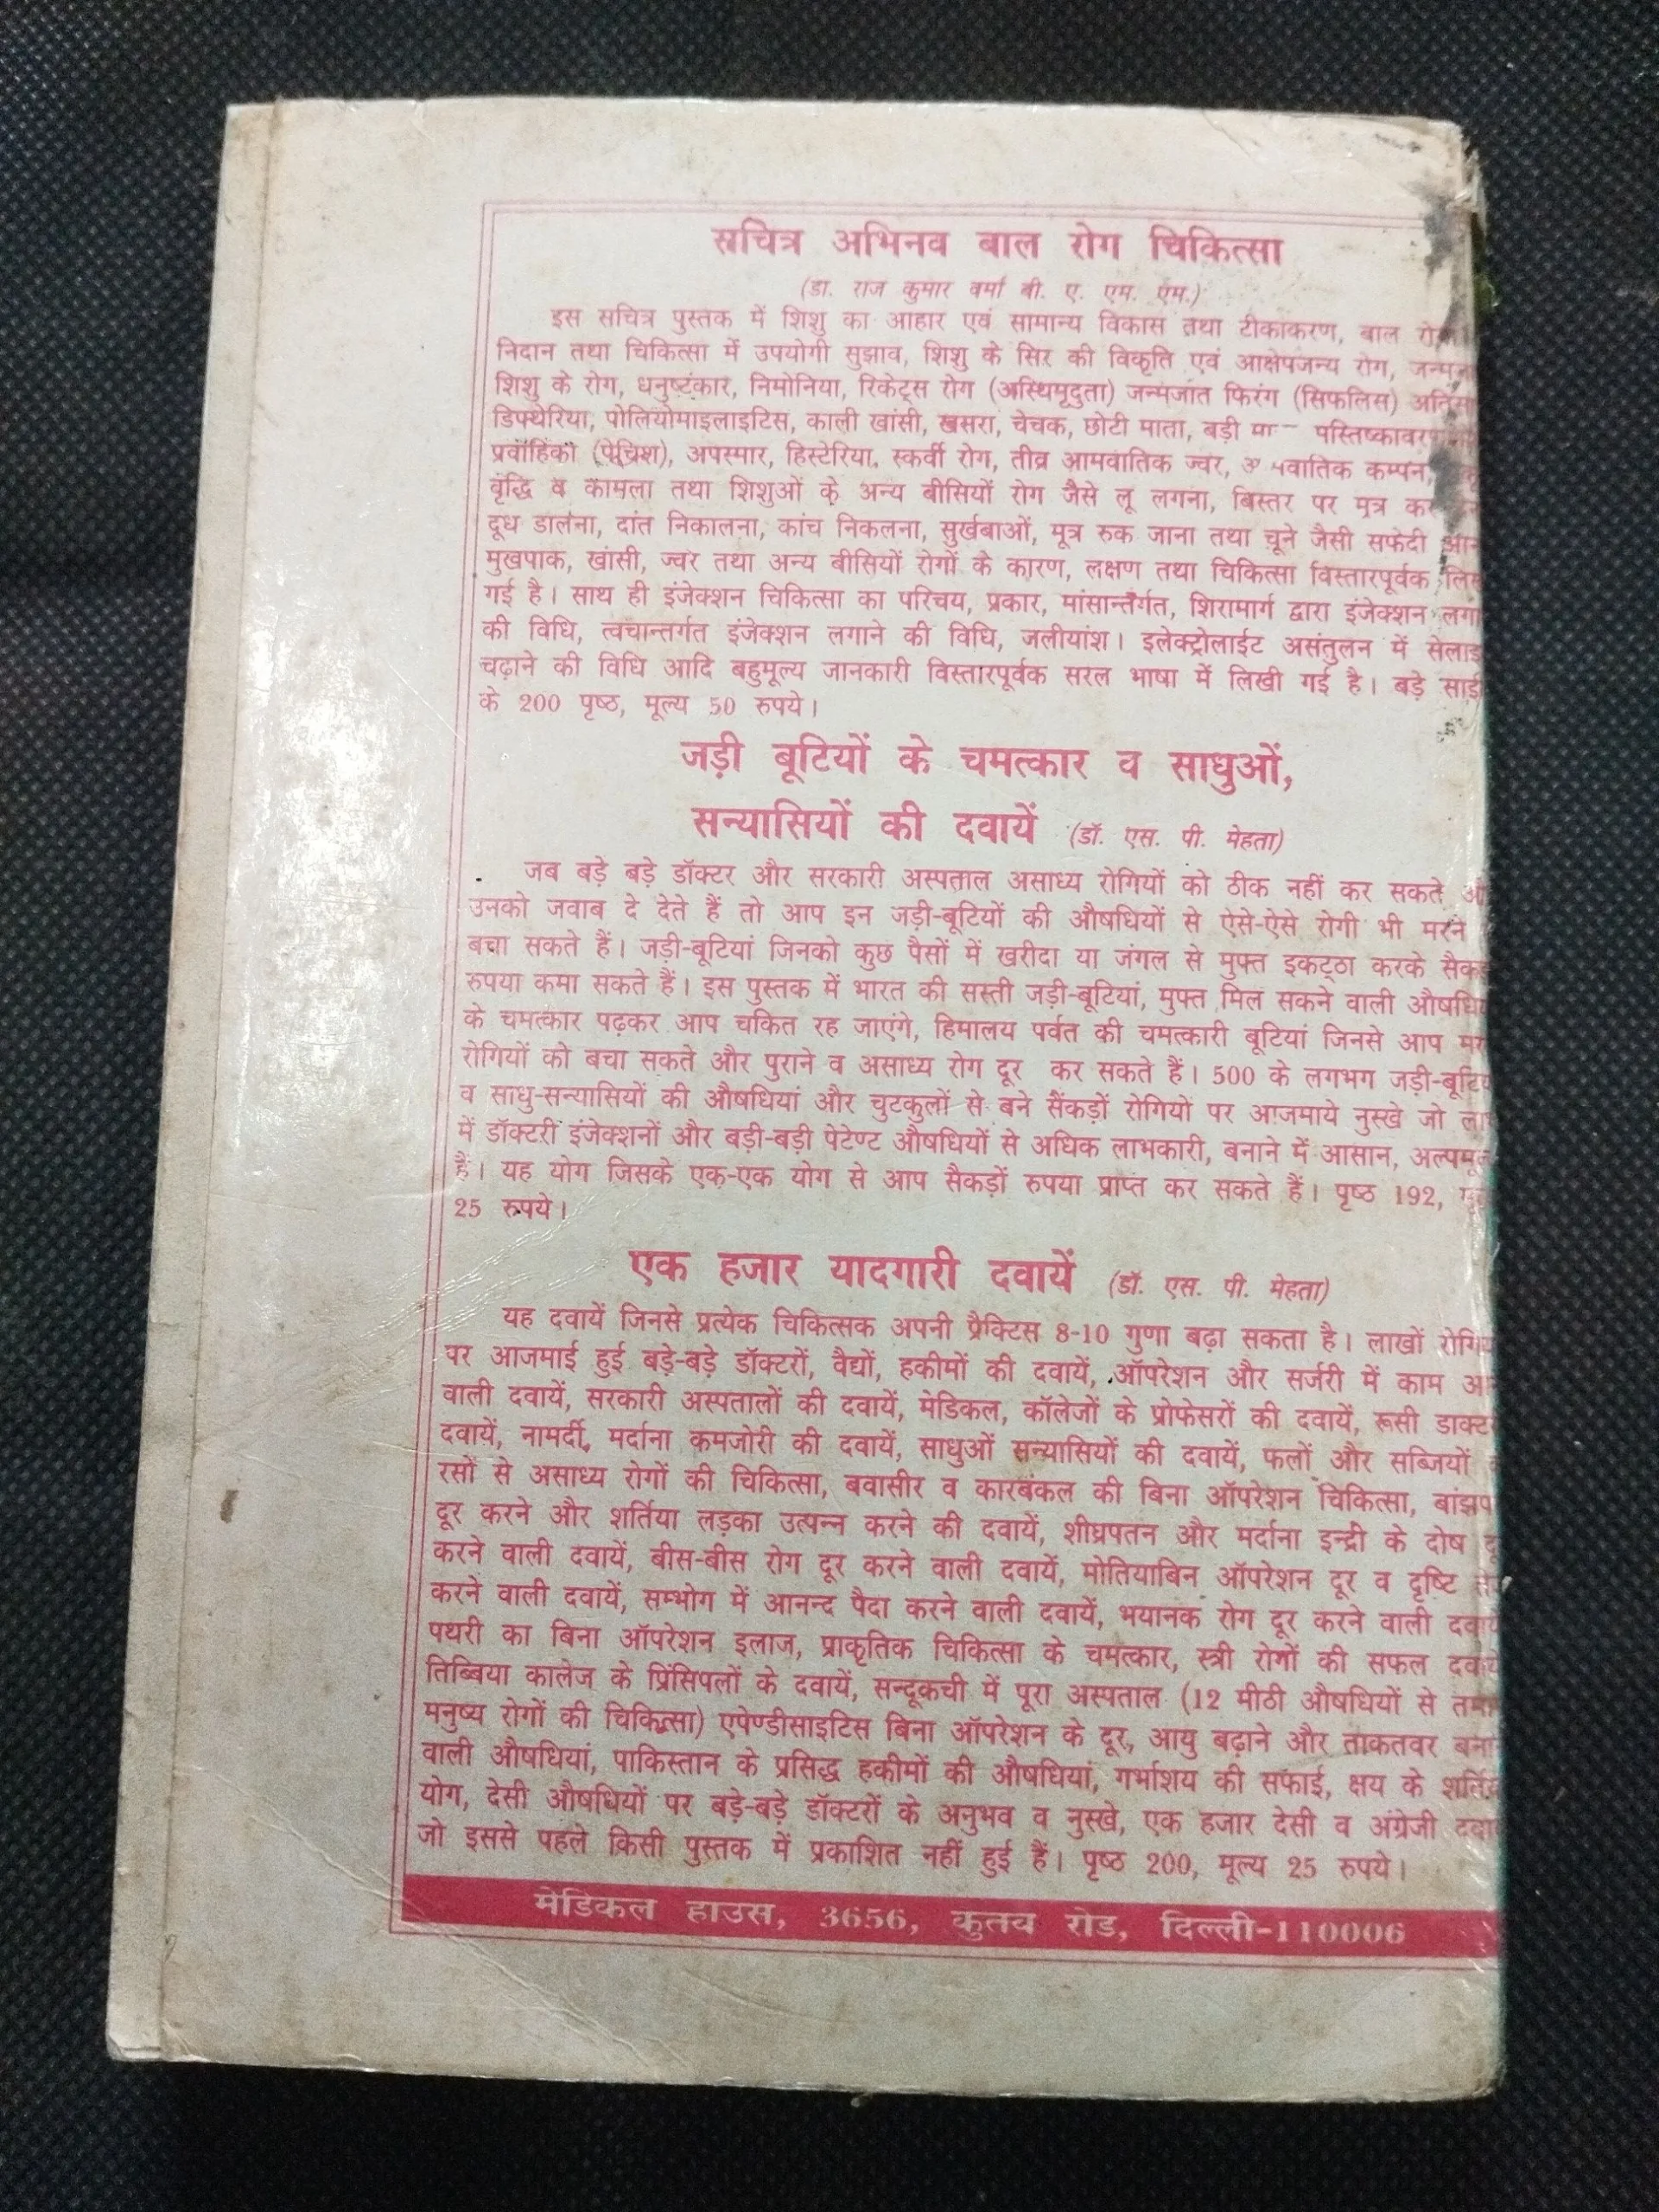 सचित्र अभिनव बाल रोग चिकित्सा
(डा. राज कुमार वर्मा बी. ए. एम. एम.)
इस सचित्र पुस्तक में शिशु का आहार एवं सामान्य विकास तथा टीकाकरण, बाल
निदान तथा चिकित्सा में उपयोगी सुझाव, शिशु के सिर की विकृति एवं आक्षेपजन्य रोग,
शिशु के रोग, धनुष्टंकार, निमोनिया, रिकेट्स रोग (अस्थिमृदुता) जन्मजात फिरंग (सिफलिस)
डिफ्थेरिया, पोलियोमाइलाइटिस, काली खांसी, खसरा, चेचक, छोटी माता, बड़ी
प्रवाहिका (पेचिश), अपस्मार, हिस्टेरिया, स्कर्वी रोग, तीव्र आमवातिक ज्वर, कम्पन,
वृद्धि व कामला तथा शिशुओं के अन्य बीसियों रोग जैसे लू लगना, बिस्तर पर मूत्र
दूध डालना, दांत निकालना, कांच निकलना, सुर्खबाओं, मूत्र रुक जाना तथा चूने जैसी सफेदी
मुखपाक, खांसी, ज्वर तथा अन्य बीसियों रोगों के कारण, लक्षण तथा चिकित्सा विस्तारपूर्वक
गई है। साथ ही इंजेक्शन चिकित्सा का परिचय, प्रकार, मांसान्तर्गत, शिरामार्ग द्वारा इंजेक्शन
की विधि, त्वचान्तर्गत इंजेक्शन लगाने की विधि, जलीयांश। इलेक्ट्रोलाईट असंतुलन में
चढ़ाने की विधि आदि बहुमूल्य जानकारी विस्तारपूर्वक सरल भाषा में लिखी गई है। बड़े
के 200 पृष्ठ, मूल्य 50 रुपये।
जड़ी बूटियों के चमत्कार व साधुओं,
सन्यासियों की दवायें (डॉ. एस. पी. मेहता)
जब बड़े बड़े डॉक्टर और सरकारी अस्पताल असाध्य रोगियों को ठीक नहीं कर सकते
उनको जवाब दे देते हैं तो आप इन जड़ी-बूटियों की औषधियों से ऐसे-ऐसे रोगी भी मरने
बचा सकते हैं। जड़ी-बूटियां जिनको कुछ पैसों में खरीदा या जंगल से मुफ्त इकट्ठा करके
रुपया कमा सकते हैं। इस पुस्तक में भारत की सस्ती जड़ी-बूटियां, मुफ्त मिल सकने वाली
के चमत्कार पढ़कर आप चकित रह जाएंगे, हिमालय पर्वत की चमत्कारी बूटियां जिनसे आप
रोगियों को बचा सकते और पुराने व असाध्य रोग दूर कर सकते हैं। 500 के लगभग
व साधु-सन्यासियों की औषधियां और चुटकुलों से बने सैंकड़ों रोगियों पर आजमाये नुस्खे जो
में डॉक्टरी इंजेक्शनों और बड़ी-बड़ी पेटेण्ट औषधियों से अधिक लाभकारी, बनाने में आसान,
हैं। यह योग जिसके एक-एक योग से आप सैकड़ों रुपया प्राप्त कर सकते हैं। पृष्ठ 192,
25 रुपये।
एक हजार यादगारी दवायें (डॉ. एस. पी. मेहता)
यह दवायें जिनसे प्रत्येक चिकित्सक अपनी प्रैक्टिस 8-10 गुणा बढ़ा सकता है। लाखों
पर आजमाई हुई बड़े-बड़े डॉक्टरों, वैद्यों, हकीमों की दवायें, ऑपरेशन और सर्जरी में काम
वाली दवायें, सरकारी अस्पतालों की दवायें, मेडिकल, कॉलेजों के प्रोफेसरों की दवायें, रूसी
दवायें, नामर्दी, मर्दाना कमजोरी की दवायें, साधुओं सन्यासियों की दवायें, फलों और सब्जियों
रसों से असाध्य रोगों की चिकित्सा, बवासीर व कारबंकल की बिना ऑपरेशन चिकित्सा,
दूर करने और शर्तिया लड़का उत्पन्न करने की दवायें, शीघ्रपतन और मर्दाना इन्द्री के दोष
करने वाली दवायें, बीस-बीस रोग दूर करने वाली दवायें, मोतियाबिन ऑपरेशन दूर व दृष्टि
करने वाली दवायें, सम्भोग में आनन्द पैदा करने वाली दवायें, भयानक रोग दूर करने वाली
पथरी का बिना ऑपरेशन इलाज, प्राकृतिक चिकित्सा के चमत्कार, स्त्री रोगों की सफल
तिब्बिया कालेज के प्रिंसिपलों के दवायें, सन्दूकची में पूरा अस्पताल (12 मीठी औषधियों से
मनुष्य रोगों की चिकित्सा) एपेण्डीसाइटिस बिना ऑपरेशन के दूर, आयु बढ़ाने और ताकतवर
वाली औषधियां, पाकिस्तान के प्रसिद्ध हकीमों की औषधियां, गर्भाशय की सफाई, क्षय के
योग, देसी औषधियों पर बड़े-बड़े डॉक्टरों के अनुभव व नुस्खे, एक हजार देसी व अंग्रेजी
जो इससे पहले किसी पुस्तक में प्रकाशित नहीं हुई हैं। पृष्ठ 200, मूल्य 25 रुपये।
मेडिकल हाउस, 3656, कुतव रोड, दिल्ली-110006